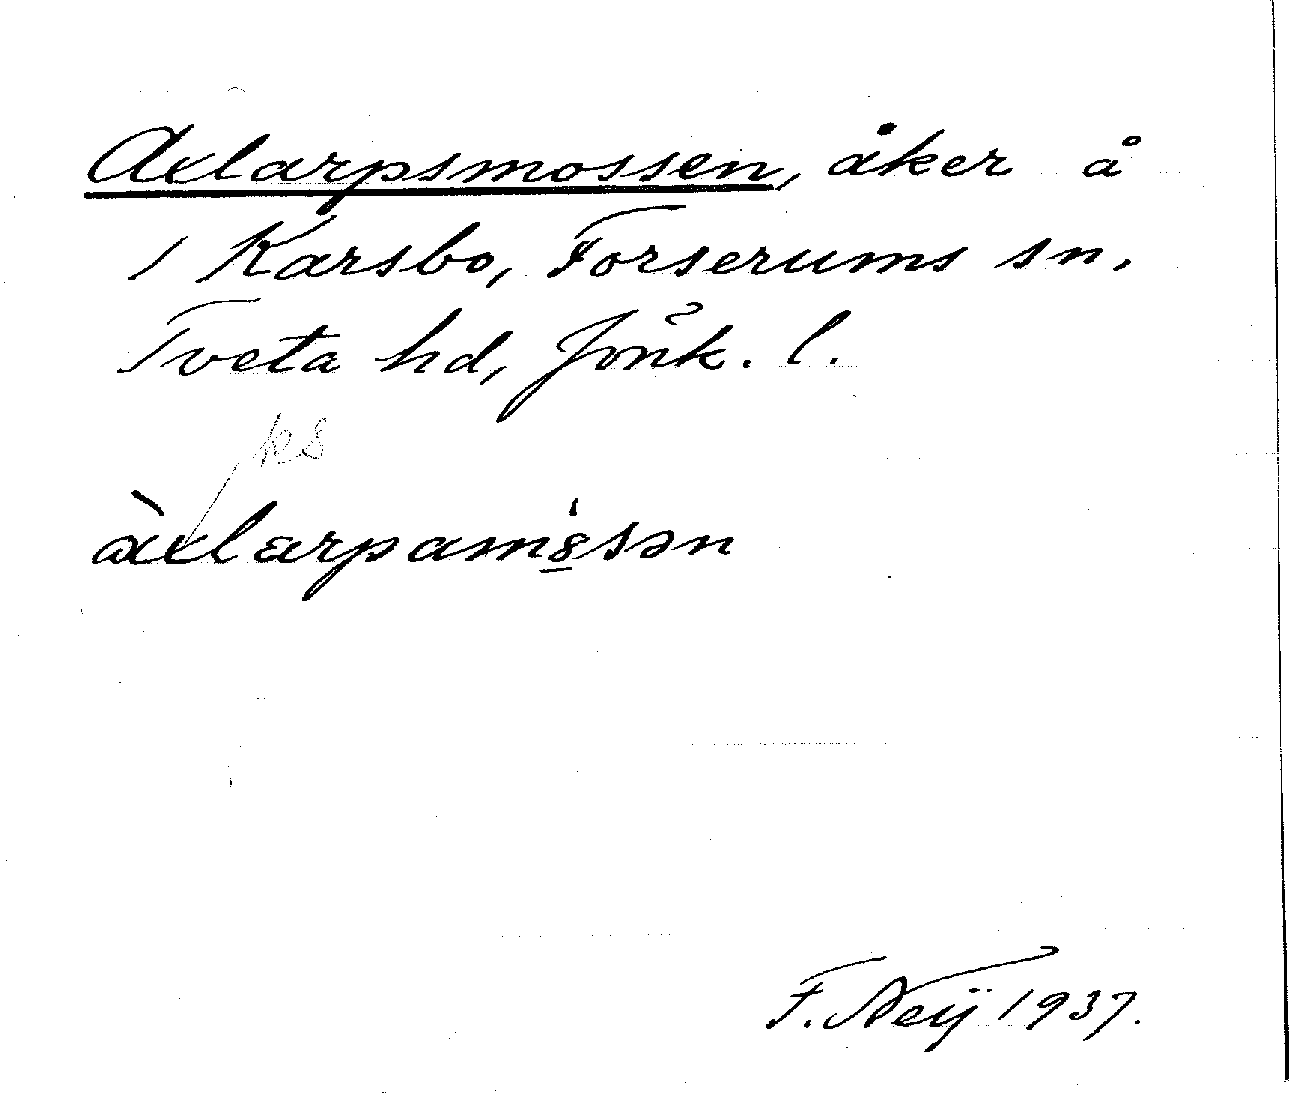 Axlarpsmossen, åker å
1 Karsbo, Forserums sn,
Tveta hd, Jönk. l.
ks
àxlarpamɵ̀sən
F. Neij 1937.